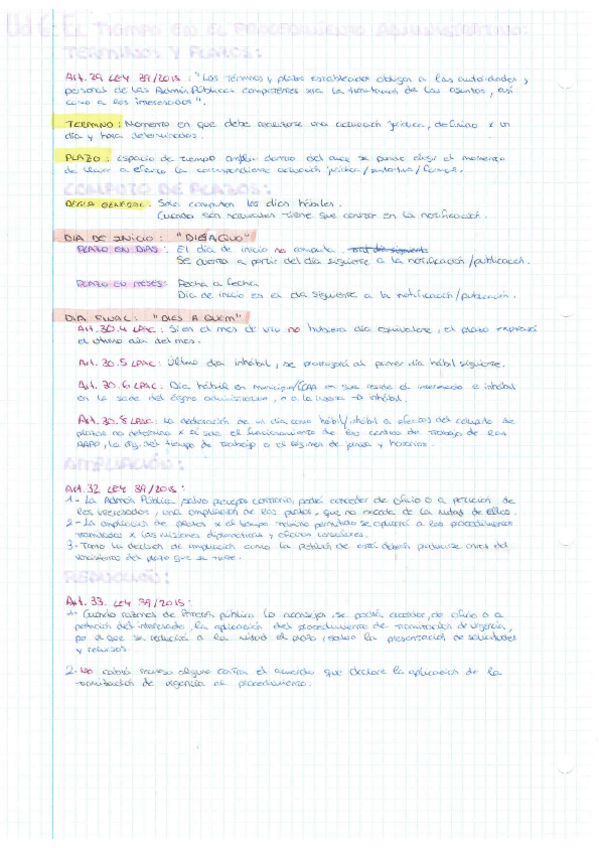 Ud 6: EL TIEMPO EN EL PROCEDIMIENTO ADMINISTRATIVO:
TERMINOS Y PLAZOS:
Art. 29 LEY 39/2015: "Los términos y plazos establecidos obligan a las autoridades y
personal de las Admin Públicas competentes para la tramitación de los asuntos, así
como a los interesados".
TERMINO: Momento en que debe realizarse una actuación jurídica, definido x un
día y hora determinados.
PLAZO: Espacio de tiempo amplio dentro del cual se puede elegir el momento
de llevar a efecto la correspondiente actuación jurídica/ /formal.
COMPUTO DE PLAZOS:
REGLA GENERAL: Solo computan los días hábiles.
Cuando son naturales tiene que constar en la notificación.
DIA DE INICIO: "DIES A QUO"
PLAZO EN DIAS: El día de inicio no computa.
Se cuenta a partir del día siguiente a la notificación/publicación.
PLAZO EN MESES: Fecha a fecha
Día de inicio es el día siguiente a la notificación/publicación.
DIA FINAL: "DIES A QUEM"
Art. 30.4 LPAC: Si en el mes de vto no hubiera día equivalente, el plazo expirará
el último día del mes.
Art. 30.5 LPAC: Último día inhábil, se prorrogará al primer día hábil siguiente.
Art. 30.6 LPAC: Día hábil en municipio/CCAA en que reside el interesado e inhábil
en la sede del órgano administrativo, o a la inversa → inhábil.
Art. 30.8 LPAC: La declaración de un día como hábil/inhábil a efectos del cómputo de
plazos no determina x sí sola el funcionamiento de los centros de trabajo de las
AAPP, la org. del tiempo de trabajo o el régimen de jornada y horarios.
AMPLIACIÓN:
Art. 32 LEY 39/2015:
1- La Admón Pública, salvo precepto contrario, podrá conceder de oficio o a petición de
los interesados, una ampliación de los plazos, que no exceda de la mitad de ellos.
2- La ampliación de plazos x el tiempo máximo permitido se aplicará a los procedimientos
tramitados x las misiones diplomáticas y oficinas consulares.
3- Tanto la decisión de ampliación como la petición de esta deberá producirse antes del
vencimiento del plazo que se trate.
REDUCCIÓN:
Art. 33. LEY 39/2015:
1- Cuando razones de interés público lo aconsejen, se podrá acordar, de oficio o a
petición del interesado, la aplicación del procedimiento de tramitación de urgencia,
por el que se reducirá a la mitad el plazo, salvo la presentación de solicitudes
y recursos.
2- No cabrá recurso alguno contra el acuerdo que declare la aplicación de la
tramitación de urgencia al procedimiento.